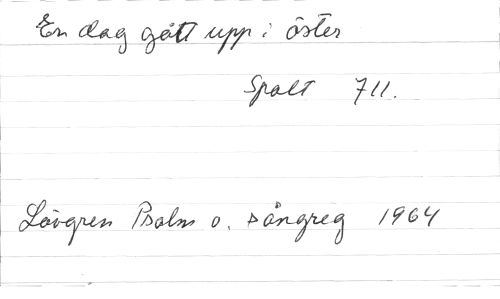 En dag gått upp i öster
Spalt 711.
Lövgren Psalm o. sångreg 1964